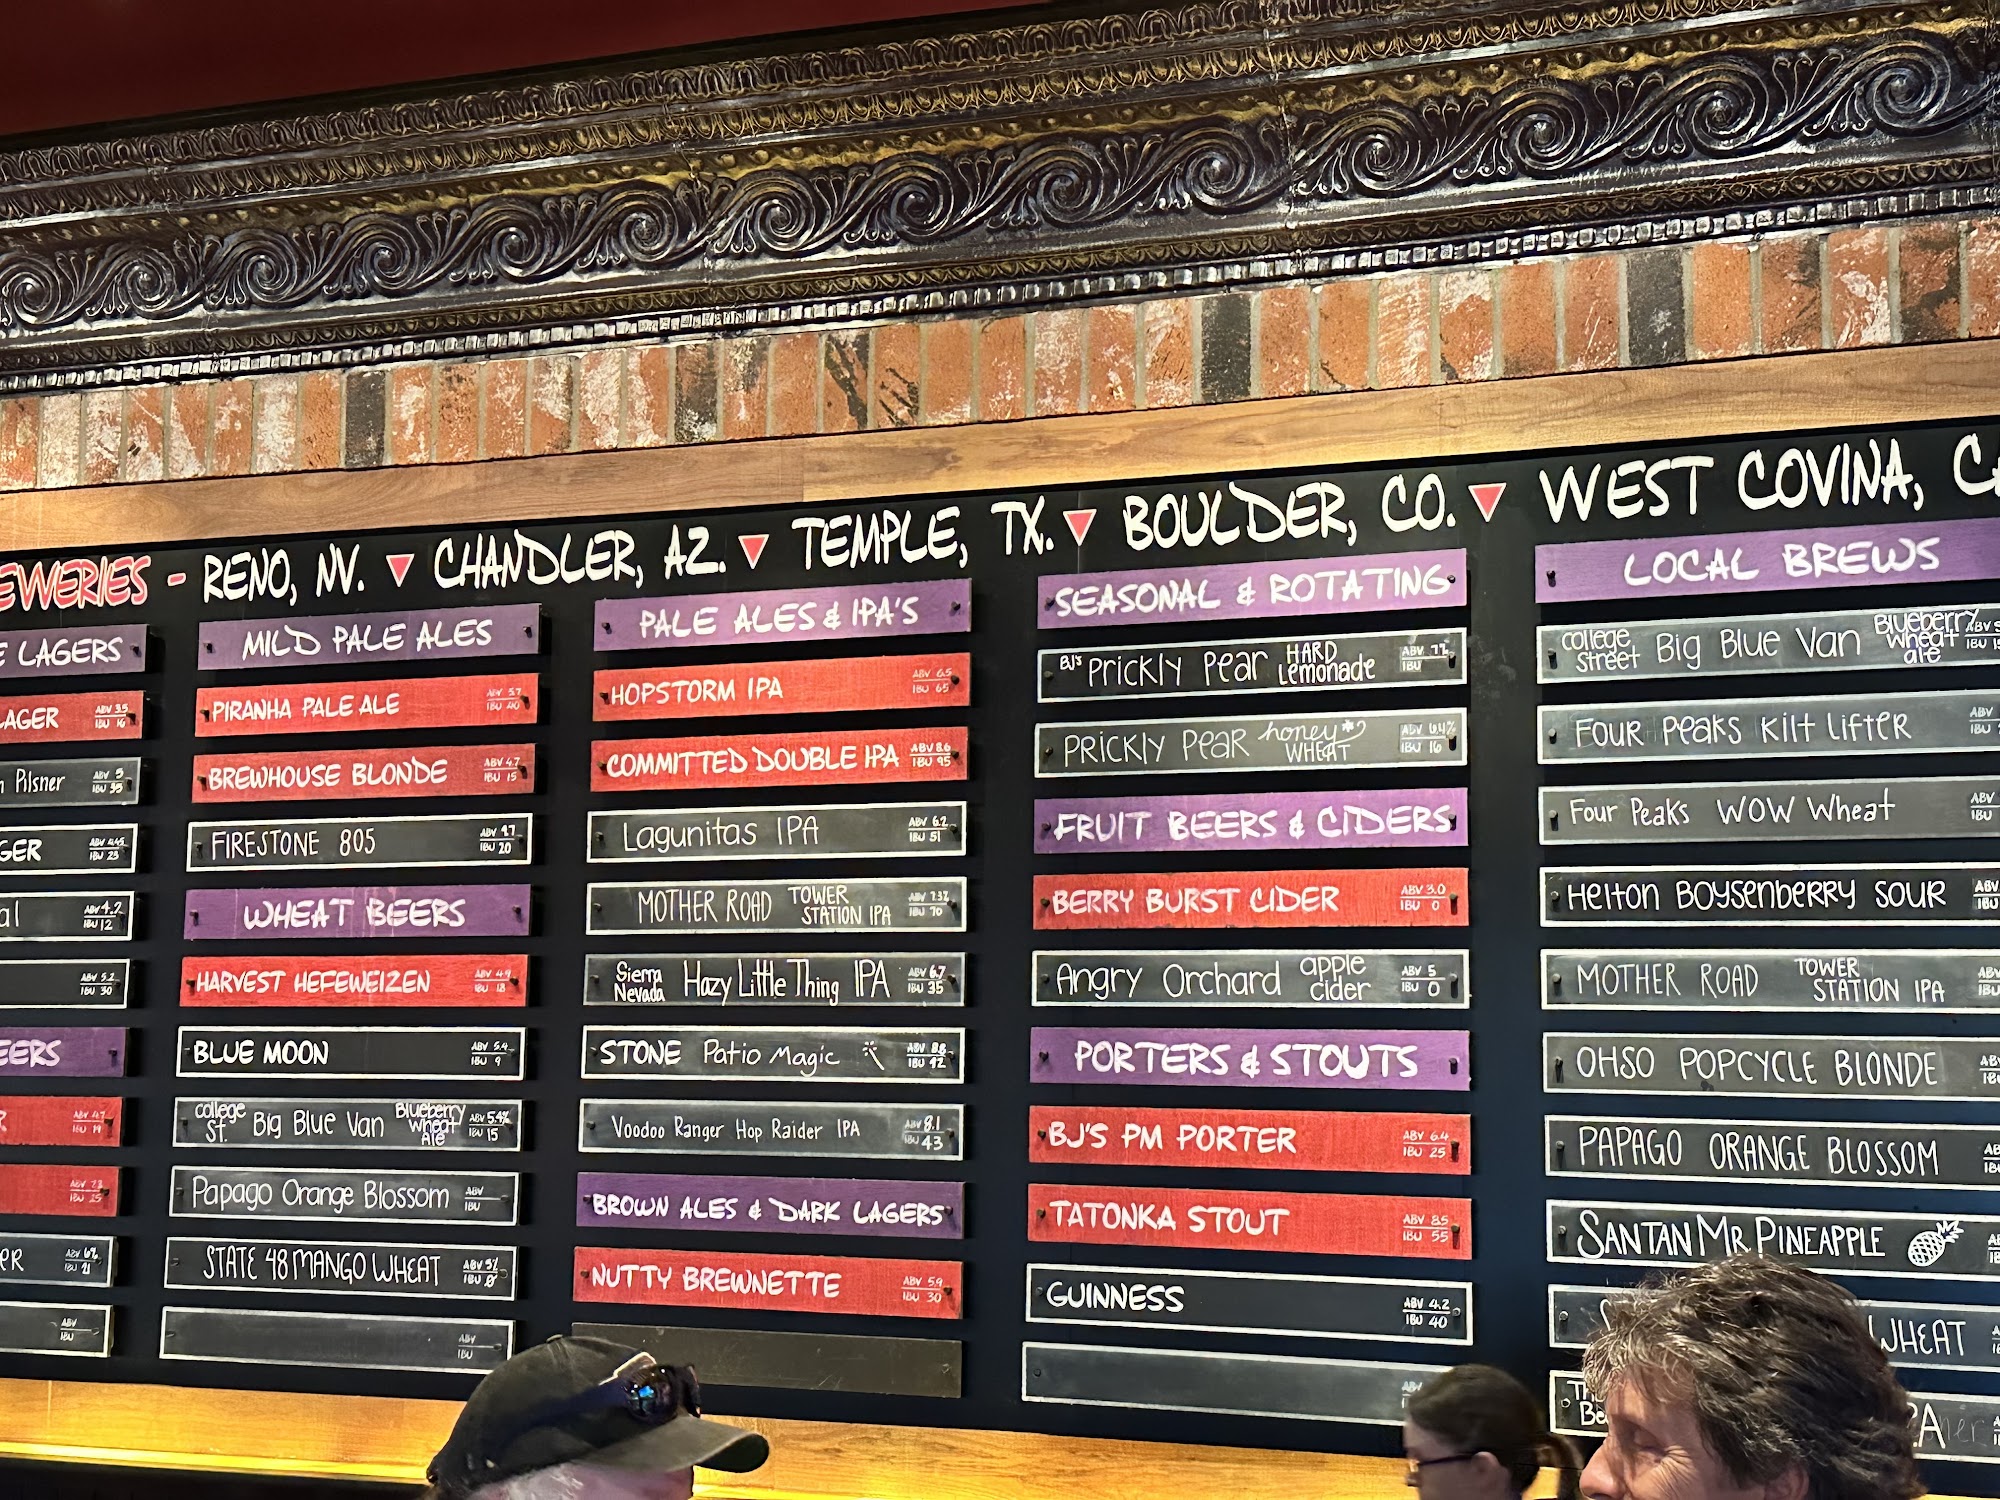 EWERIES - RENO, NV. CHANDLER, AZ. TEMPLE, TX. BOULDER, CO. WEST COVINA, CA
E LAGERS
AGER ABV 3.5 IBU 16
Pilsner ABV 5 IBU 35
GER ABV 4.45 IBU 23
al ABV 4.2 IBU 12
ABV 5.2 IBU 30
EERS
R ABV 4.7 IBU 19
ABV 7.3 IBU 25
ER ABV 6% IBU 21
ABV IBU
MILD PALE ALES
PIRANHA PALE ALE ABV 5.7 IBU 40
BREWHOUSE BLONDE ABV 4.7 IBU 15
FIRESTONE 805 ABV 4.7 IBU 20
WHEAT BEERS
HARVEST HEFEWEIZEN ABV 4.9 IBU 18
BLUE MOON ABV 5.4 IBU 9
college St. Big Blue Van Blueberry Wheat Ale ABV 5.4% IBU 15
Papago Orange Blossom ABV IBU
STATE 48 MANGO WHEAT ABV 5% IBU 0
ABV IBU
PALE ALES & IPA'S
HOPSTORM IPA ABV 6.5 IBU 65
COMMITTED DOUBLE IPA ABV 8.6 IBU 95
Lagunitas IPA ABV 6.2 IBU 51
MOTHER ROAD TOWER STATION IPA ABV 7.3% IBU 70
Sierra Nevada Hazy Little Thing IPA ABV 6.7 IBU 35
STONE Patio Magic ABV IBU
Voodoo Ranger Hop Raider IPA ABV 8.1 IBU 43
BROWN ALES & DARK LAGERS
NUTTY BREWNETTE ABV 5.9 IBU 30
SEASONAL & ROTATING
BJ's PRICKLY Pear HARD Lemonade ABV 7% IBU
PRICKLY Pear honey WHEAT ABV IBU 16
FRUIT BEERS & CIDERS
BERRY BURST CIDER ABV 3.0 IBU 0
Angry Orchard apple cider ABV 5 IBU 0
PORTERS & STOUTS
BJ'S PM PORTER ABV 6.4 IBU 25
TATONKA STOUT ABV 8.5 IBU 55
GUINNESS ABV 4.2 IBU 40
LOCAL BREWS
college street Big Blue Van Blueberry wheat ale ABV 5 IBU 15
Four Peaks Kilt Lifter ABV
Four Peaks WOW Wheat ABV IBU
Helton Boysenberry SOUR ABV IBU
MOTHER ROAD TOWER STATION IPA
OHSO POPCYCLE BLONDE
PAPAGO ORANGE BLOSSOM
SANTAN MR PINEAPPLE
WHEAT